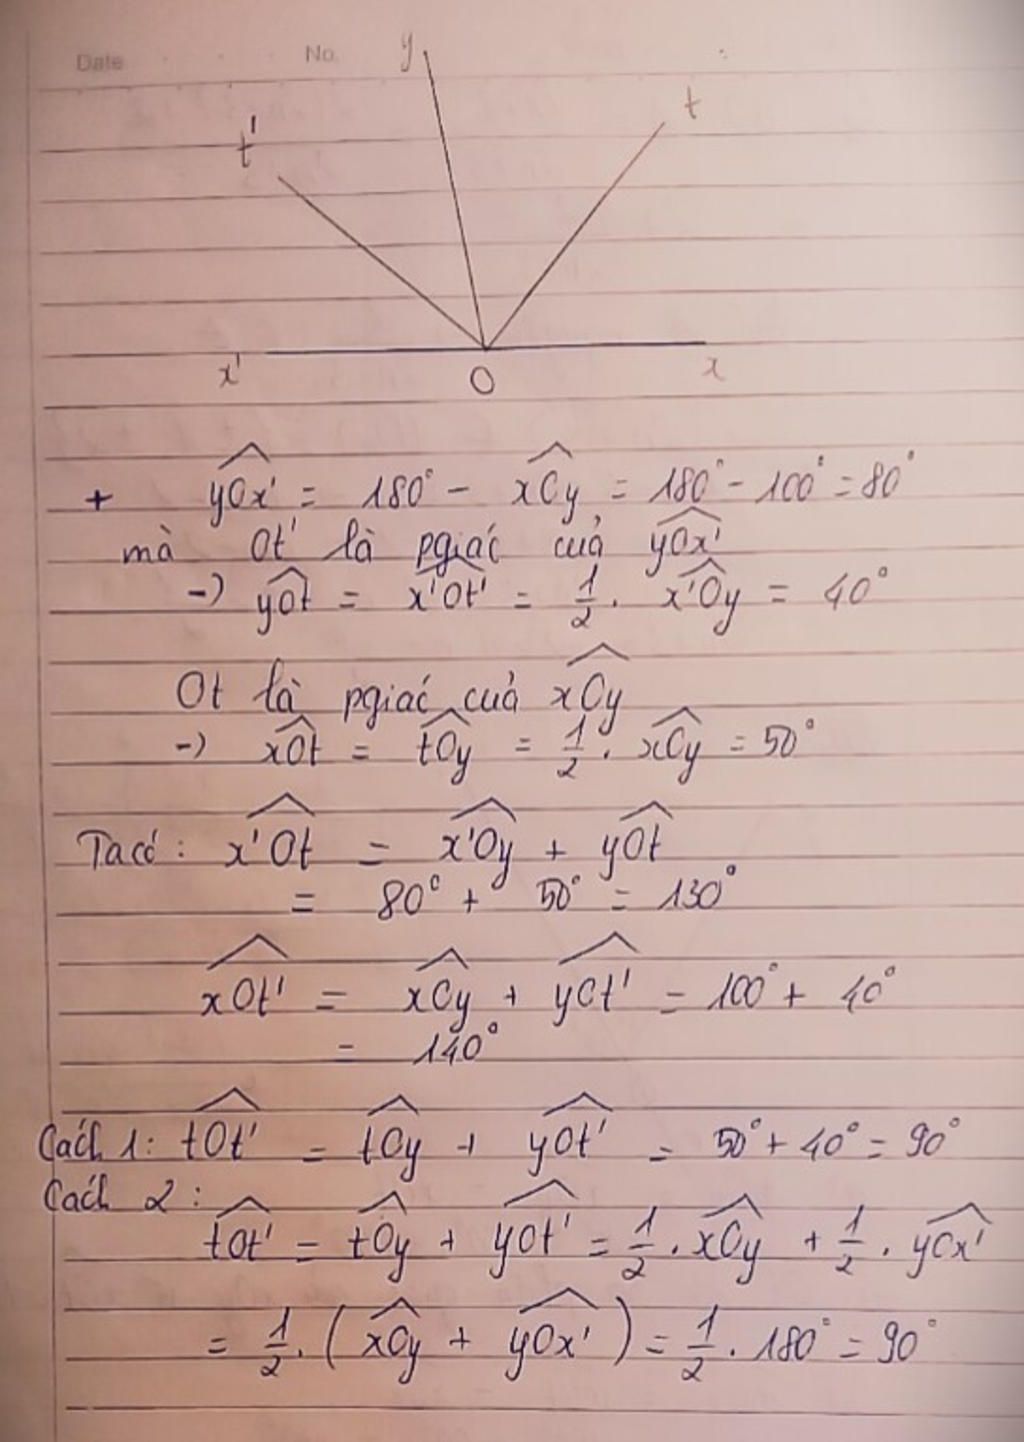 Date No.
y
t
t'
x' O x
+ yOx' = 180° - xOy = 180° - 100° = 80°
mà Ot' là pgiác của yOx'
-) yOt = x'Ot' = 1/2 . x'Oy = 40°
Ot là pgiác của xOy
-) xOt = tOy = 1/2 . xOy = 50°
Ta có: x'Ot = x'Oy + yOt
= 80° + 50° = 130°
xOt' = xOy + yOt' = 100° + 40°
= 140°
Cách 1: tOt' = tOy + yOt' = 50° + 40° = 90°
Cách 2:
tOt' = tOy + yOt' = 1/2 . xOy + 1/2 . yOx'
= 1/2 . (xOy + yOx') = 1/2 . 180° = 90°